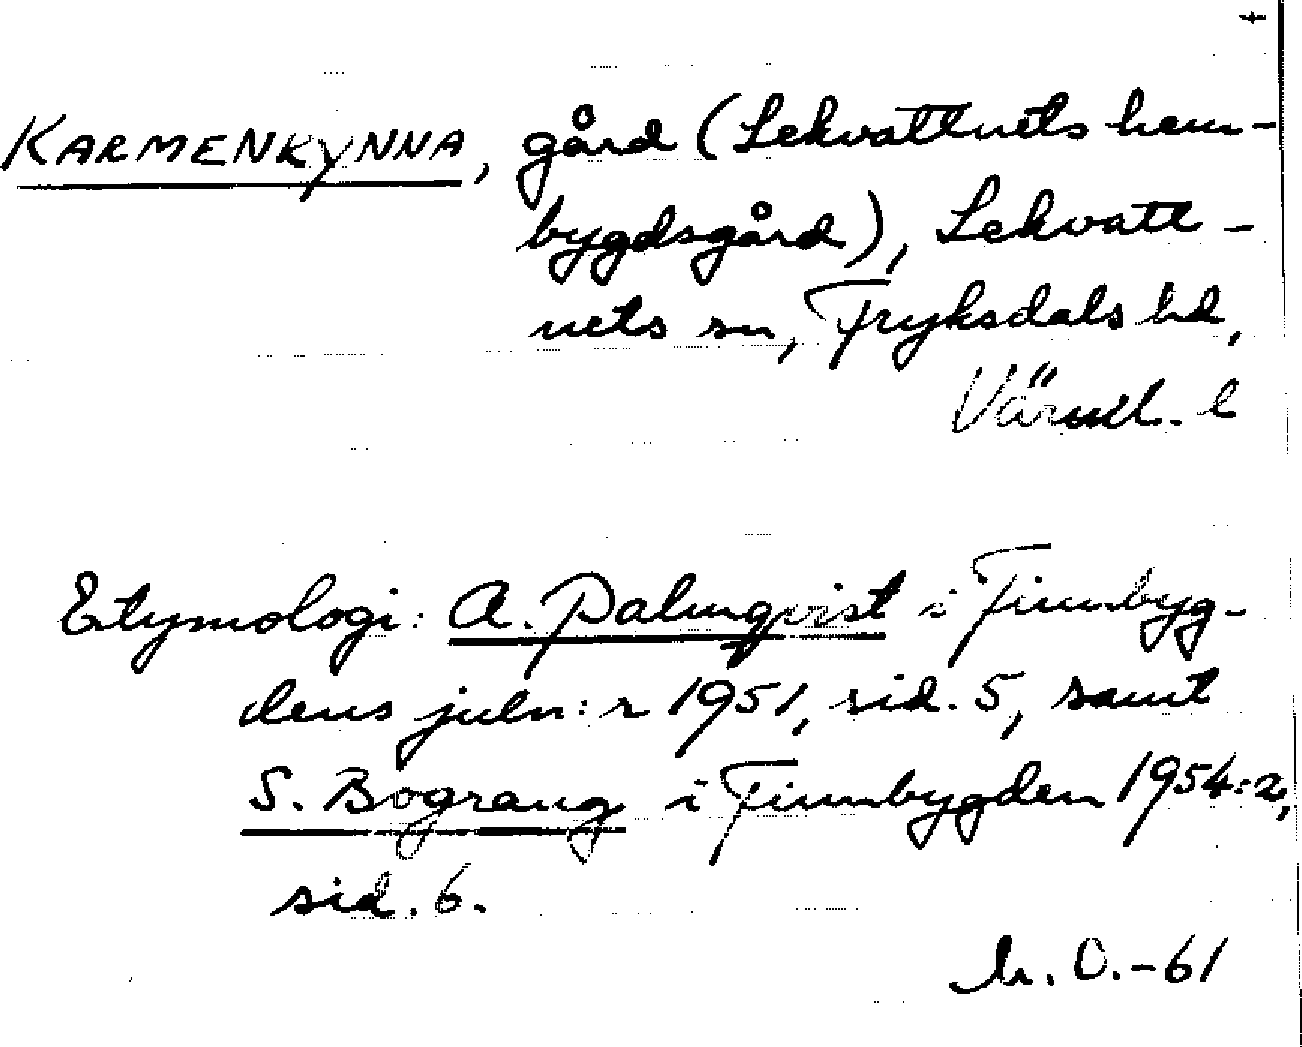 KARMENKYNNA, gård (Lekvattnets hem-
bygdsgård), Lekvatt-
nets sn, Fryksdals hd,
Värml. l
Etymologi: A. Palmqvist i Finnbyg-
dens juln:r 1951, sid. 5, samt
S. Bograng i Finnbygden 1954:2,
sid. 6.
O.-61